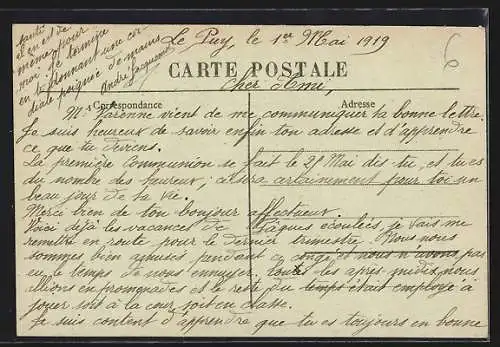 Le Puy, le 1er Mai 1919
CARTE POSTALE
Cher Ami,
Correspondance
Adresse
Mr Varenne vient de me communiquer ta bonne lettre.
Je suis heureux de savoir enfin ton adresse et d'apprendre
ce que tu deviens.
La première Communion se fait le 28 Mai dis tu, et tu es
du nombre des heureux; ce sera certainement pour toi un
beau jour de ta vie.
Merci bien de ton bonjour affectueux.
Voici déjà les vacances de Pâques écoulées, je vais me
remettre en route pour le dernier trimestre. Nous nous
sommes bien amusés pendant ce congé et nous n'avons pas
eu le temps de nous ennuyer. toutes les après-midis nous
allions en promenades et le reste du temps était employé à
jouer soit à la cour soit en classe.
Je suis content d'apprendre que tu es toujours en bonne
santé
et en est de
même pour
moi. Je termine
en te donnant une cor
diale poignée de mains
André
6